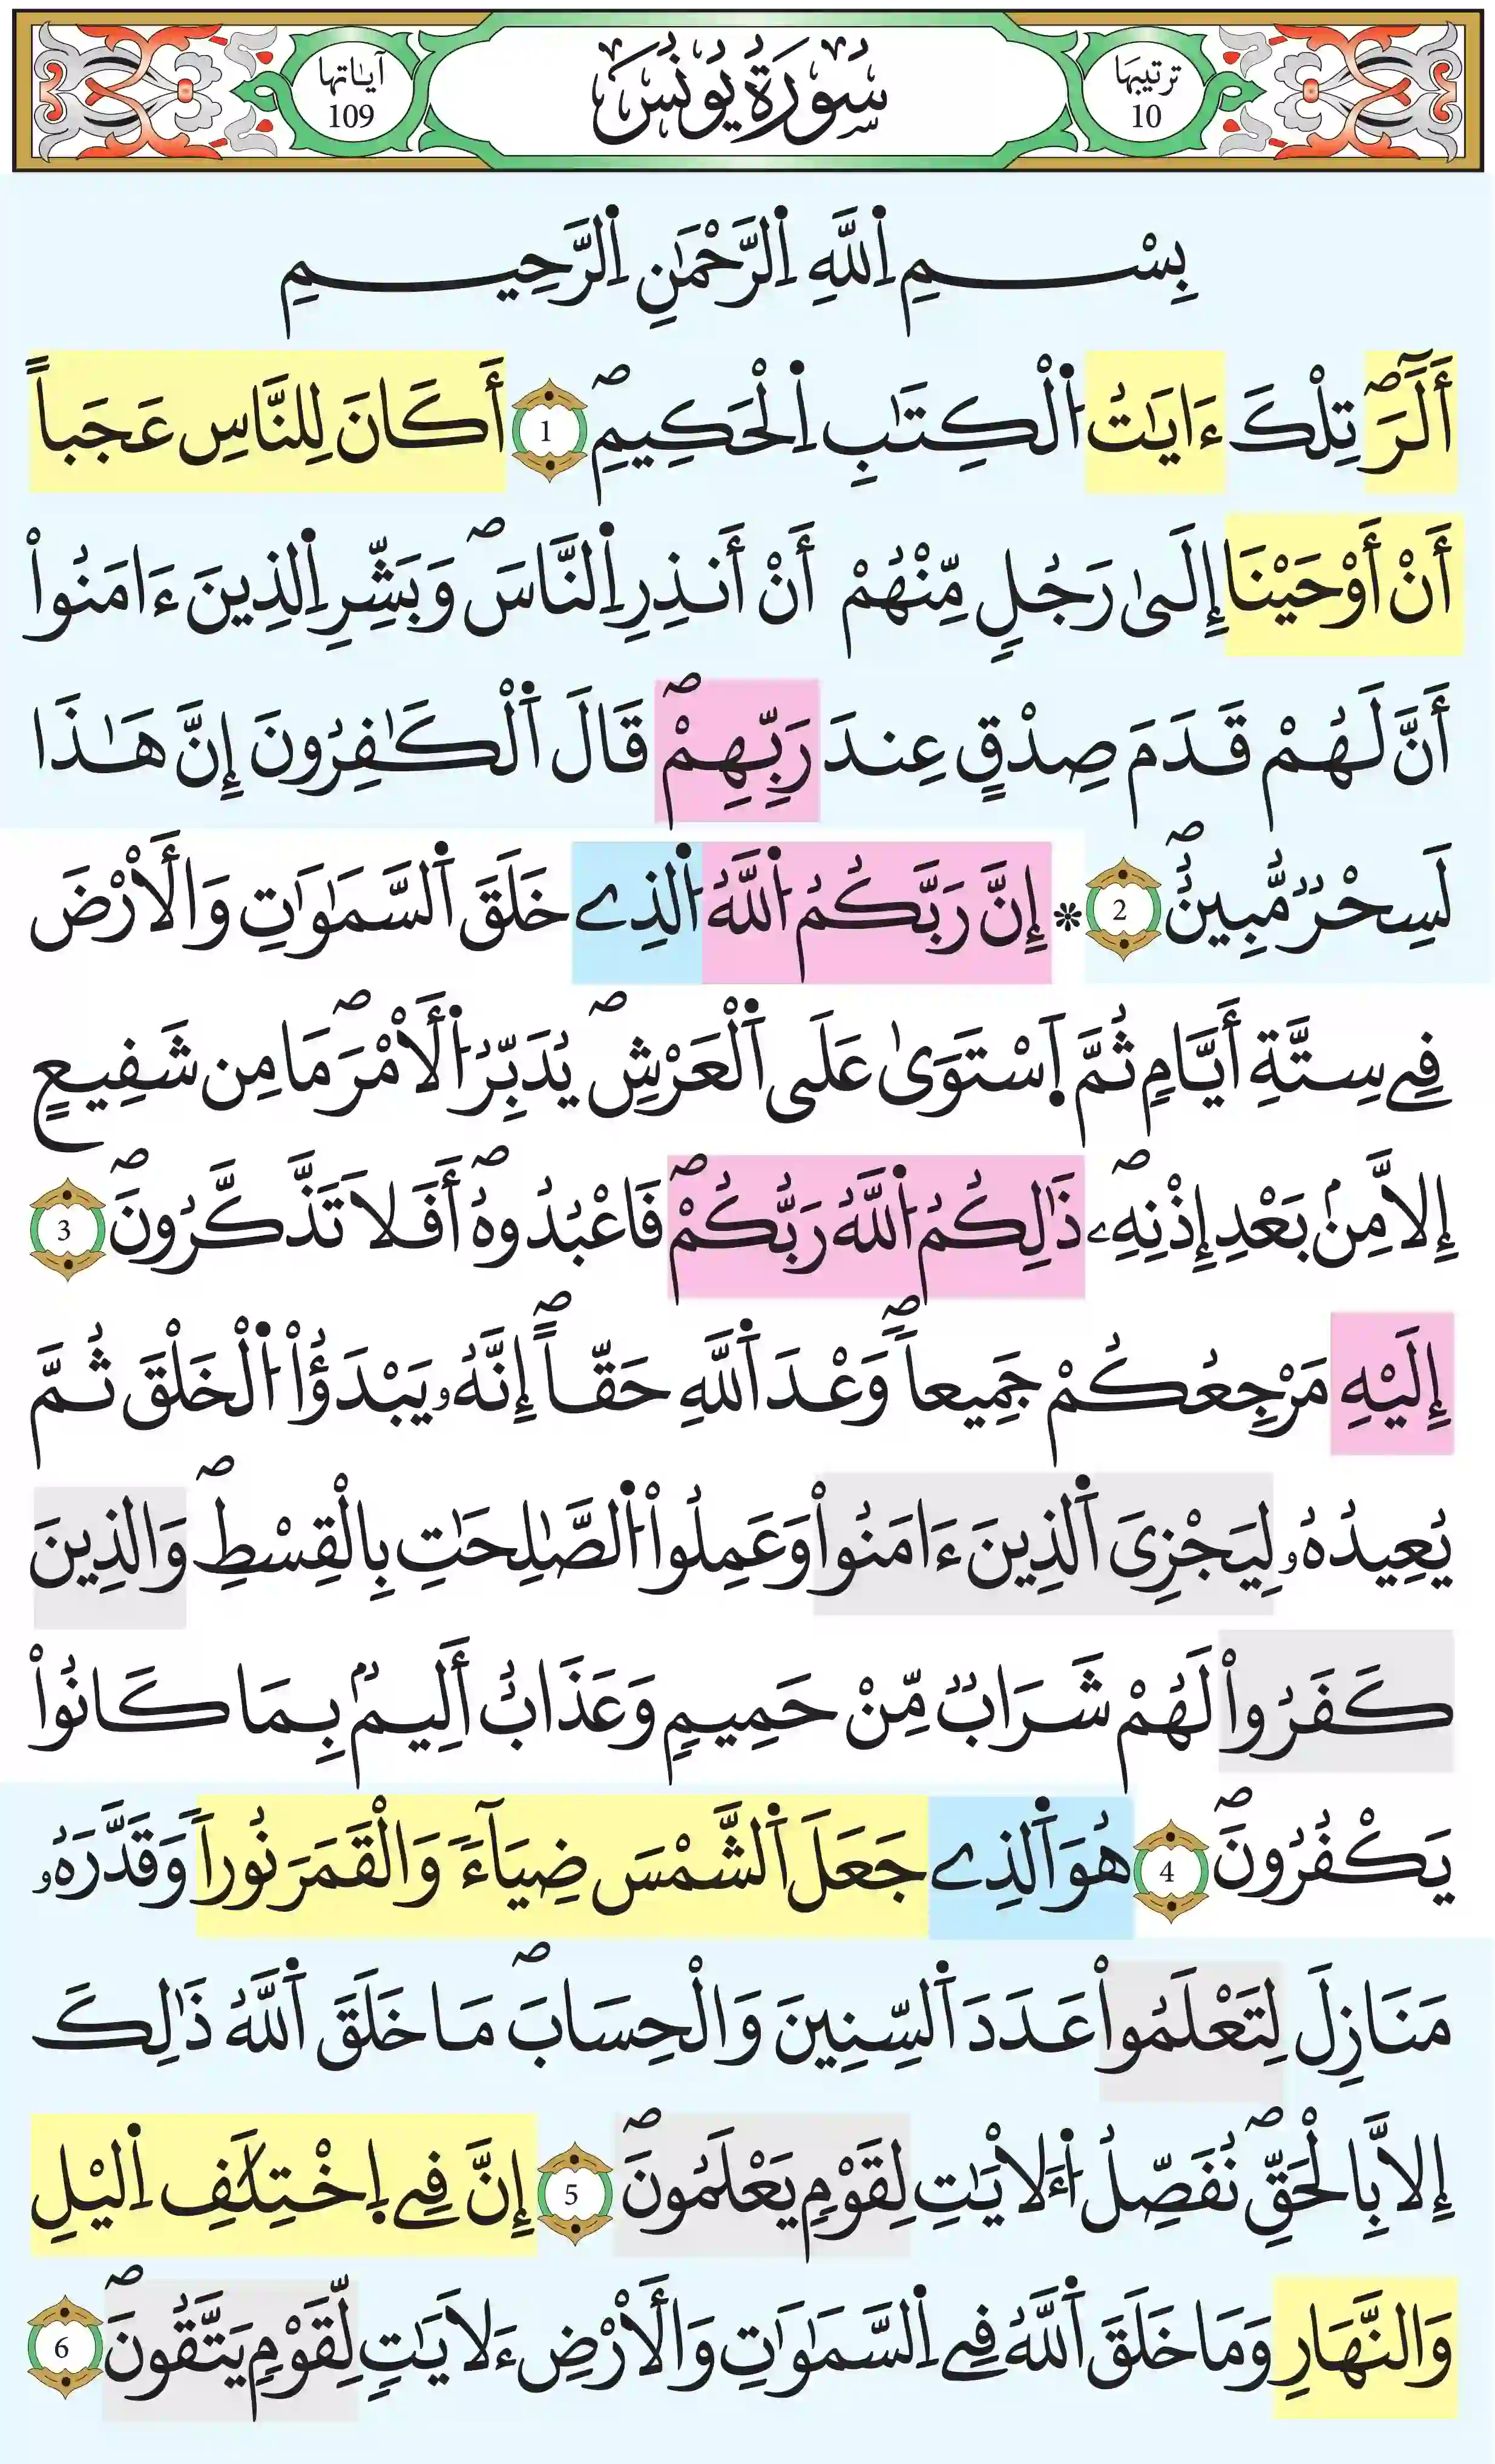 ترتيبها 10
سُورَةُ يُونُسَ
آياتها 109
بِسْمِ اِ۬للَّهِ اِ۬لرَّحْمَٰنِ اِ۬لرَّحِيمِ
أَلَٓرَۖ تِلْكَ ءَايَٰتُ اُ۬لْكِتَٰبِ اِ۬لْحَكِيمِۖ 1 أَكَانَ لِلنَّاسِ عَجَباً
أَنْ أَوْحَيْنَا إِلَىٰ رَجُلٍ مِّنْهُمْ أَنْ أَنذِرِ اِ۬لنَّاسَۖ وَبَشِّرِ اِ۬لذِينَ ءَامَنُواْ
أَنَّ لَهُمْ قَدَمَ صِدْقٍ عِندَ رَبِّهِمْۖ قَالَ اَ۬لْكَٰفِرُونَ إِنَّ هَٰذَا
لَسِحْرٌ مُّبِينٌۖ 2 * إِنَّ رَبَّكُمُ اُ۬للَّهُ اُ۬لذِے خَلَقَ اَ۬لسَّمَٰوَٰتِ وَالْأَرْضَ
فِے سِتَّةِ أَيَّامٖ ثُمَّ اَ۪سْتَوَىٰ عَلَى اَ۬لْعَرْشِۖ يُدَبِّرُ اُ۬لْأَمْرَۖ مَا مِن شَفِيعٍ
إِلاَّ مِنۢ بَعْدِ إِذْنِهِۦۖ ذَٰلِكُمُ اُ۬للَّهُ رَبُّكُمْۖ فَاعْبُدُوهُۖ أَفَلاَ تَذَّكَّرُونَۖ 3
إِلَيْهِ مَرْجِعُكُمْ جَمِيعاًۖ وَعْدَ اَ۬للَّهِ حَقّاًۖ إِنَّهُۥ يَبْدَؤُاْ اُ۬لْخَلْقَ ثُمَّ
يُعِيدُهُۥ لِيَجْزِىَ اَ۬لذِينَ ءَامَنُواْ وَعَمِلُواْ اُ۬لصَّٰلِحَٰتِ بِالْقِسْطِۖ وَالذِينَ
كَفَرُواْ لَهُمْ شَرَابٌ مِّنْ حَمِيمٍ وَعَذَابٌ أَلِيمُۢ بِمَا كَانُواْ
يَكْفُرُونَۖ 4 هُوَ اَ۬لذِے جَعَلَ اَ۬لشَّمْسَ ضِيَآءً وَالْقَمَرَ نُوراً وَقَدَّرَهُۥ
مَنَازِلَ لِتَعْلَمُواْ عَدَدَ اَ۬لسِّنِينَ وَالْحِسَابَۖ مَا خَلَقَ اَ۬للَّهُ ذَٰلِكَ
إِلاَّ بِالْحَقِّۖ نُفَصِّلُ اُ۬ءَلْأيَٰتِ لِقَوْمٍ يَعْلَمُونَۖ 5 إِنَّ فِے اِ۪خْتِلَٰفِ اِ۬ليْلِ
وَالنَّهَارِ وَمَا خَلَقَ اَ۬للَّهُ فِے اِ۬لسَّمَٰوَٰتِ وَالْأَرْضِ ءَلاَيَٰتٍ لِّقَوْمٍ يَتَّقُونَۖ 6